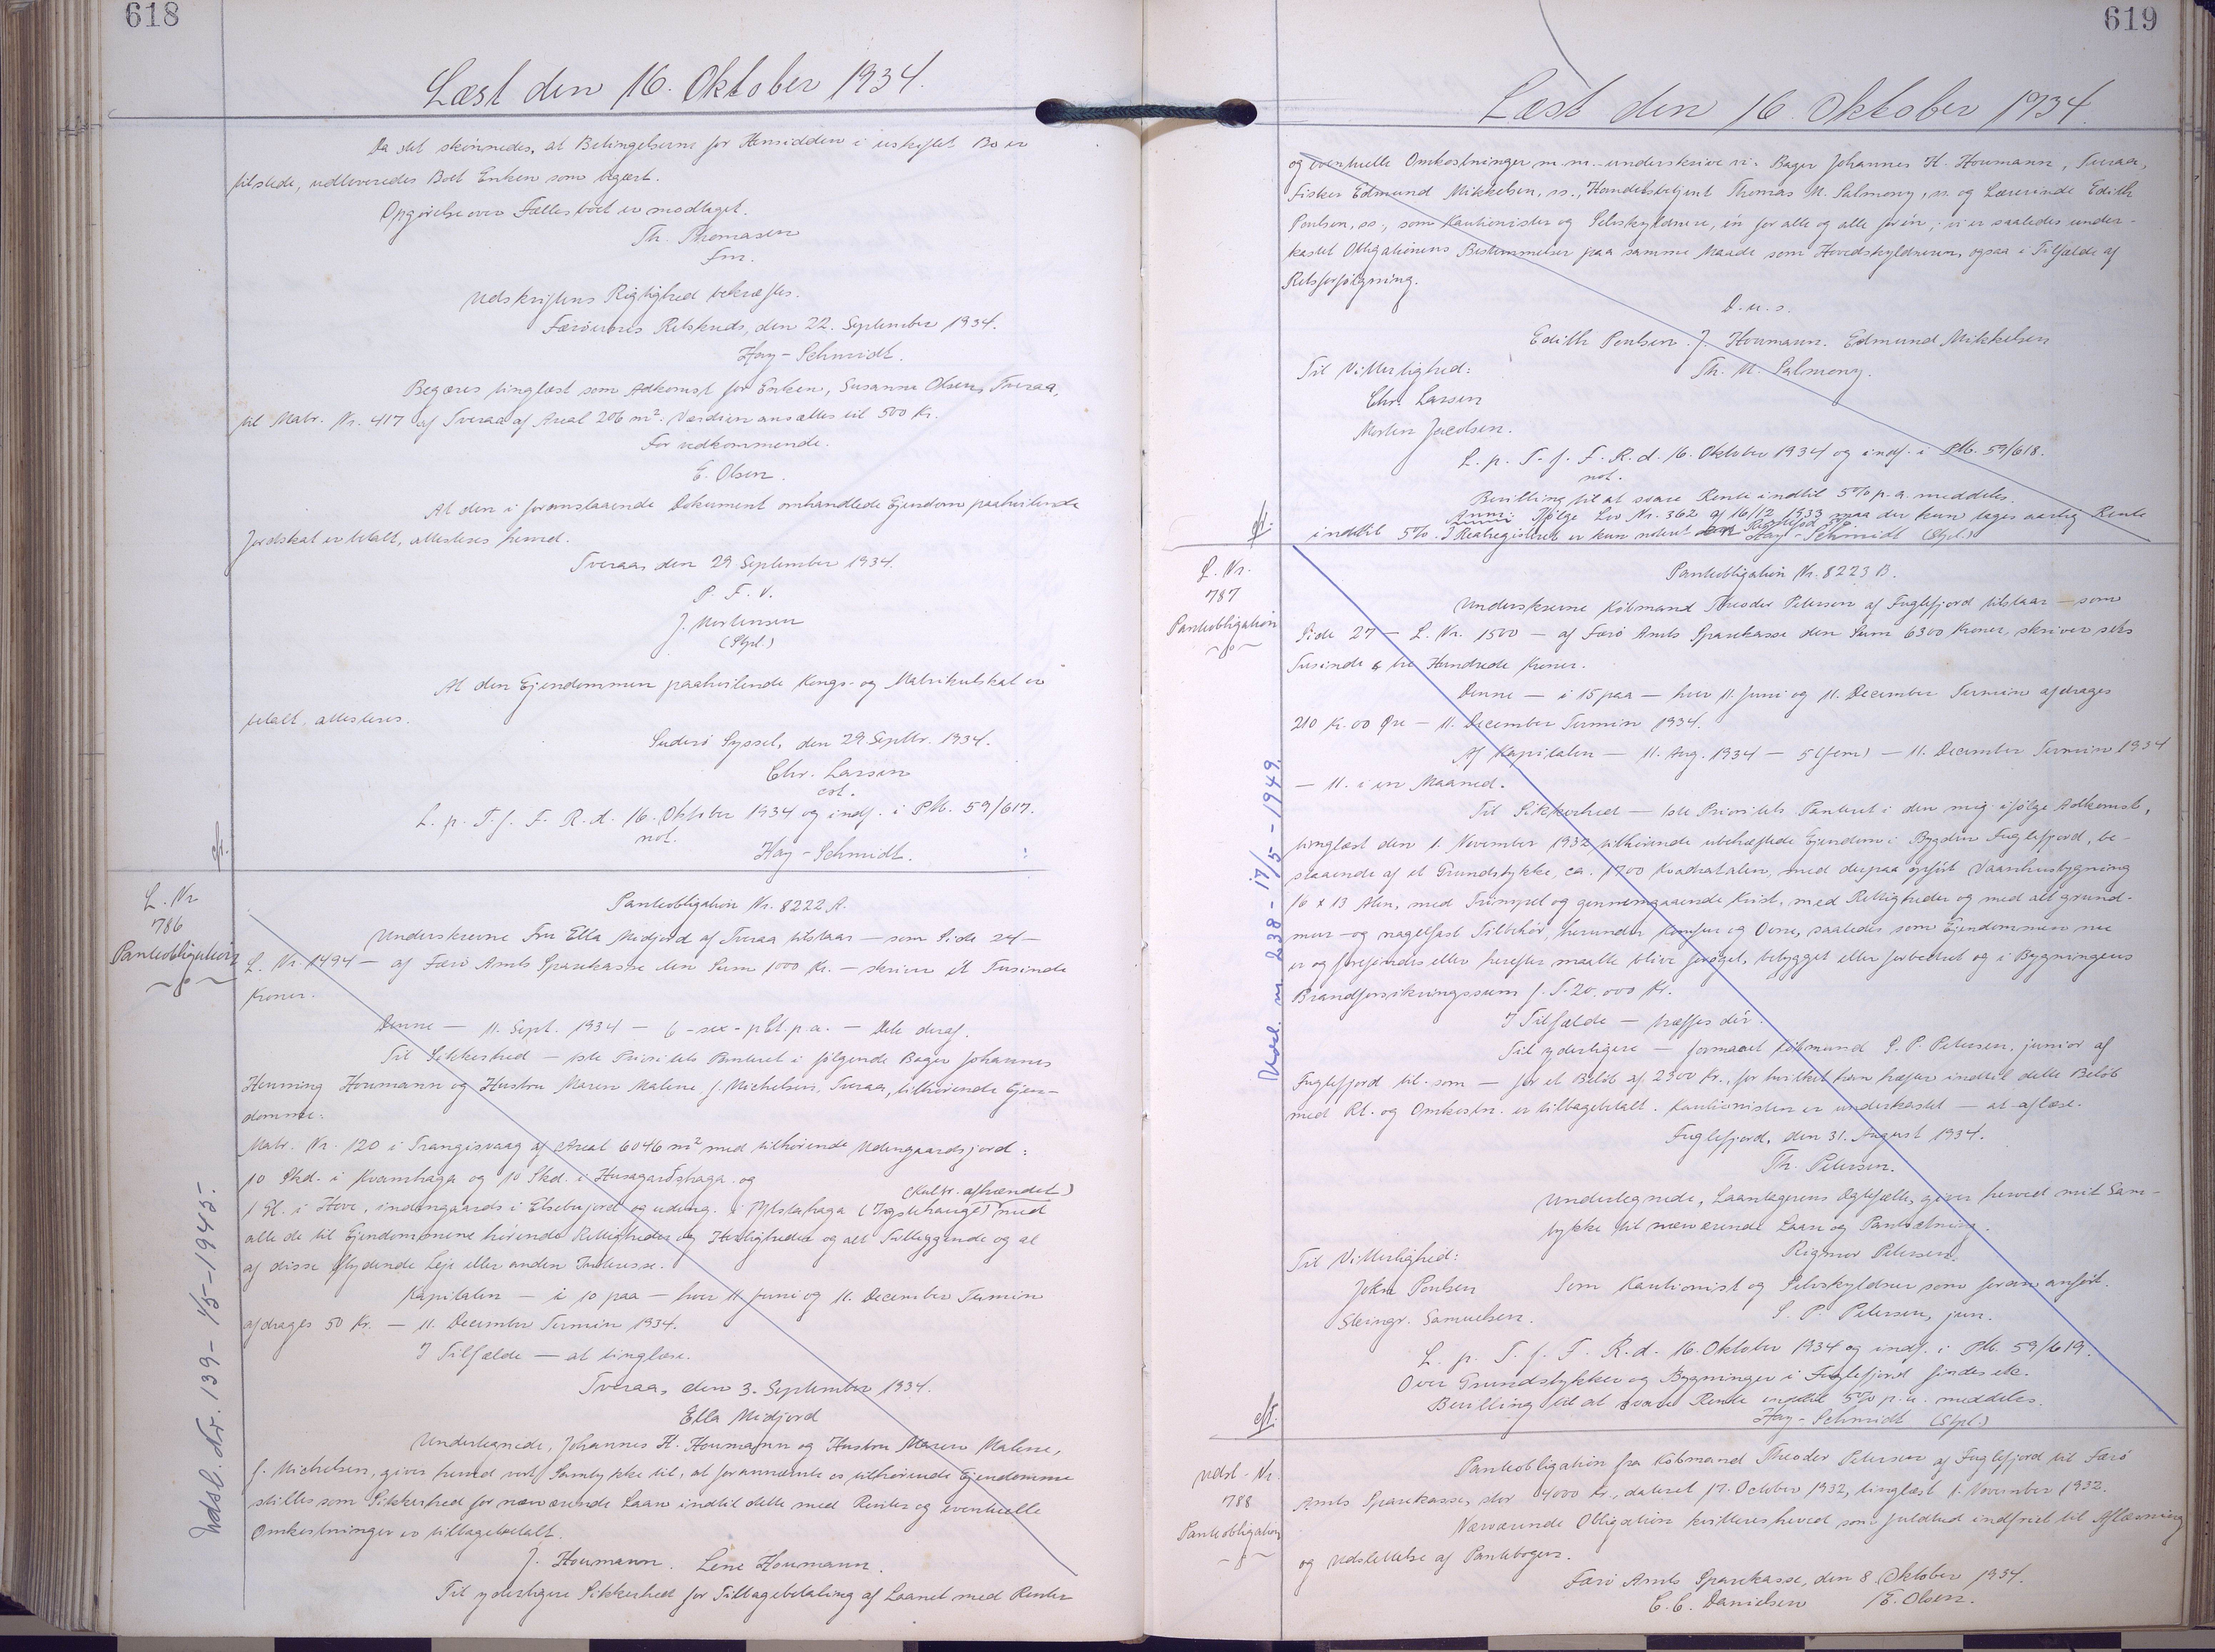 618
Læst den 16. Oktober 1934.
Da det skønnedes, at Betingelserne for Hensidden i uskiftet Bo er
tilstede, udleveredes Boet Enken som begært.
Opgørelse over Fællesboet er modtaget.
Th. Thomasen
fm.
Udskriftens Rigtighed bekræftes.
Færøernes Retskreds, den 22. September 1934.
Hay-Schmidt.
Begæres tinglæst som Adkomst for Enken, Susanne Olsen, Tveraa,
til Matr. Nr. 417 af Tveraa af Areal 206 m². Værdien ansættes til 500 Kr.
For vedkommende.
E. Olsen.
At den i foranstaaende Dokument omhandlede Ejendom paahvilende
Jordskat er betalt, attesteres herved.
Tveraa, den 29 September 1934.
P. F. V.
J. Mortensen
(Stpl.)
At den Ejendommen paahvilende Kongs- og Matrikulskat er
betalt, attesteres.
Suderø Syssel, den 29. Septbr. 1934.
Chr. Larsen
cst.
L. p. T. f. F. R. d. 16. Oktober 1934 og indf. i PM. 59/617.
not.
Hay-Schmidt.
cfr.
L. Nr
786
Panteobligation
Panteobligation Nr. 8222 A.
Underskrevne Fru Ella Midjord af Tveraa tilstaar — som Side 24 —
L. Nr. 1494 — af Færø Amts Sparekasse den Sum 1000 Kr. — skriver et Tusinde
Kroner.
Denne — 11. Sept. 1934 — 6 - sex - pCt. p.a. — Dele deraf.
Til Sikkerhed — 1ste Prioritets Panteret i følgende Bager Johannes
Henning Houmann og Hustru Maren Malene, f. Michelsen, Tveraa, tilhørende Ejen-
domme:
Matr. Nr. 120 i Trangisvaag af Areal 6046 m² med tilhørende Udengaardsjord:
10 Skd. i Kvamhaga og 10 Skd. i Husagarðshaga og
(Kultr. afhændet)
1 Gl. i Hove, indengaards i Elsebujord og udeng. i Ytstahaga (Ispehauge) med
alle de til Ejendommene hørende Rettigheder og Herligheder og alt Tilliggende og al
af disse flydende Leje eller anden Interesse.
Kapitalen — i 10 paa — hver 11 Juni og 11. December Termin
afdrages 50 Kr. — 11. December Termin 1934.
I Tilfælde — at tinglæse.
Tveraa, den 3. September 1934.
Ella Midjord
Undertegnede, Johannes H. Houmann og Hustru Maren Malene,
f. Michelsen, giver herved vort Samtykke til, at forannævnte os tilhørende Ejendomme
stilles som Sikkerhed for nærværende Laan indtil dette med Renter og eventuelle
Omkostninger er tilbagebetalt.
J. Houmann. Lene Houmann.
Til yderligere Sikkerhed for Tilbagebetaling af Laanet med Renter
Udsl. Nr. 139 - 1/5 - 1945.
619
Læst den 16. Oktober 1934.
og eventuelle Omkostninger m.m. underskrive vi: Bager Johannes H. Houmann, Tveraa,
Fisker Edmund Mikkelsen, ss., Handelsbetjent Thomas M. Salmony, ss. og Lærerinde Edith
Poulsen, ss., som Kautionister og Selvskyldnere, én for alle og alle for én; vi er saaledes under-
kastet Obligationens Bestemmelser paa samme Maade som Hovedskyldneren, ogsaa i Tilfælde af
Retsforfølgning.
D. u. s.
Edith Poulsen. J. Houmann. Edmund Mikkelsen
Til Vitterlighed: Th. M. Salmony.
Chr. Larsen
Morten Jacobsen.
L. p. T. f. F. R. d. 16. Oktober 1934 og indf. i PM. 59/618.
not.
Bevilling til at svare Rente indtil 5% p.a. meddeles.
Anm: Ifølge Lov Nr. 362 af 16/12 1933 maa der kun tages aarlig Rente
indtil 5%. I Realregisteret er kun noteret Rentefod 5%.
Hay-Schmidt (Stpl.)
cfr.
L. Nr.
787
Panteobligation
Panteobligation Nr. 8223 B.
Underskrevne Købmand Theodor Petersen af Fuglefjord tilstaar — som
Side 27 — L. Nr. 1500 — af Færø Amts Sparekasse den Sum 6300 Kroner, skriver seks
Tusinde & tre Hundrede Kroner.
Denne — i 15 paa — hver 11. Juni og 11. December Termin afdrages
210 Kr. 00 Øre — 11. December Termin 1934.
Af Kapitalen — 11. Aug. 1934 — 5 (fem) — 11. December Termin 1934
— 11. i en Maaned.
Til Sikkerhed — 1ste Prioritets Panteret i den mig ifølge Adkomst,
tinglæst den 1. November 1932 tilhørende ubehæftede Ejendom i Bygden Fuglefjord, be-
staaende af et Grundstykke, ca. 1700 Kvadratalen, med derpaa opført Vaaningsbygning
16 x 13 Alen, med Trempel og gennemgaaende Kvist, med Rettigheder og med alt grund-
mur- og nagelfast Tilbehør, herunder Komfur og Ovne, saaledes som Ejendommen nu
er og forefindes eller herefter maatte blive forøget, bebygget eller forbedret og i Bygningens
Brandforsikringssum f. T. 20.000 Kr.
I Tilfælde — træffes dér.
Til yderligere — formaaet Købmand S. P. Petersen, junior af
Fuglefjord til som — for et Beløb af 2300 Kr., for hvilket han hæfter indtil dette Beløb
med Rt. og Omkostn. er tilbagebetalt. Kautionisten er underkastet — at aflæse.
Fuglefjord, den 31. August 1934.
Th. Petersen.
Undertegnede, Laantagerens Ægtefælle, giver herved mit Sam-
tykke til nærværende Laan og Pantsætning.
Til Vitterlighed: Rigmor Petersen.
John Poulsen Som Kautionist og Selvskyldner som foran anført.
Steingr. Samuelsen. S. P. Petersen, jun.
L. p. T. f. F. R. d. 16. Oktober 1934 og indf. i PM. 59/619.
Over Grundstykker og Bygninger i Fuglefjord findes etc.
Bevilling til at svare Rente indtil 5% p.a. meddeles.
Hay-Schmidt (Stpl.)
cfr.
Udsl. nr. 238 - 17/5 - 1949.
Udsl. Nr.
788
Panteobligation
Panteobligation fra Købmand Theodor Petersen af Fuglefjord til Færø
Amts Sparekasse, stor 4000 Kr., dateret 17. October 1932, tinglæst 1. November 1932.
Nærværende Obligation kvitteres herved som fuldtud indfriet til Aflæsning
og Udslettelse af Pantebogen.
Færø Amts Sparekasse, den 8. Oktober 1934.
C. C. Danielsen /E. Olsen.